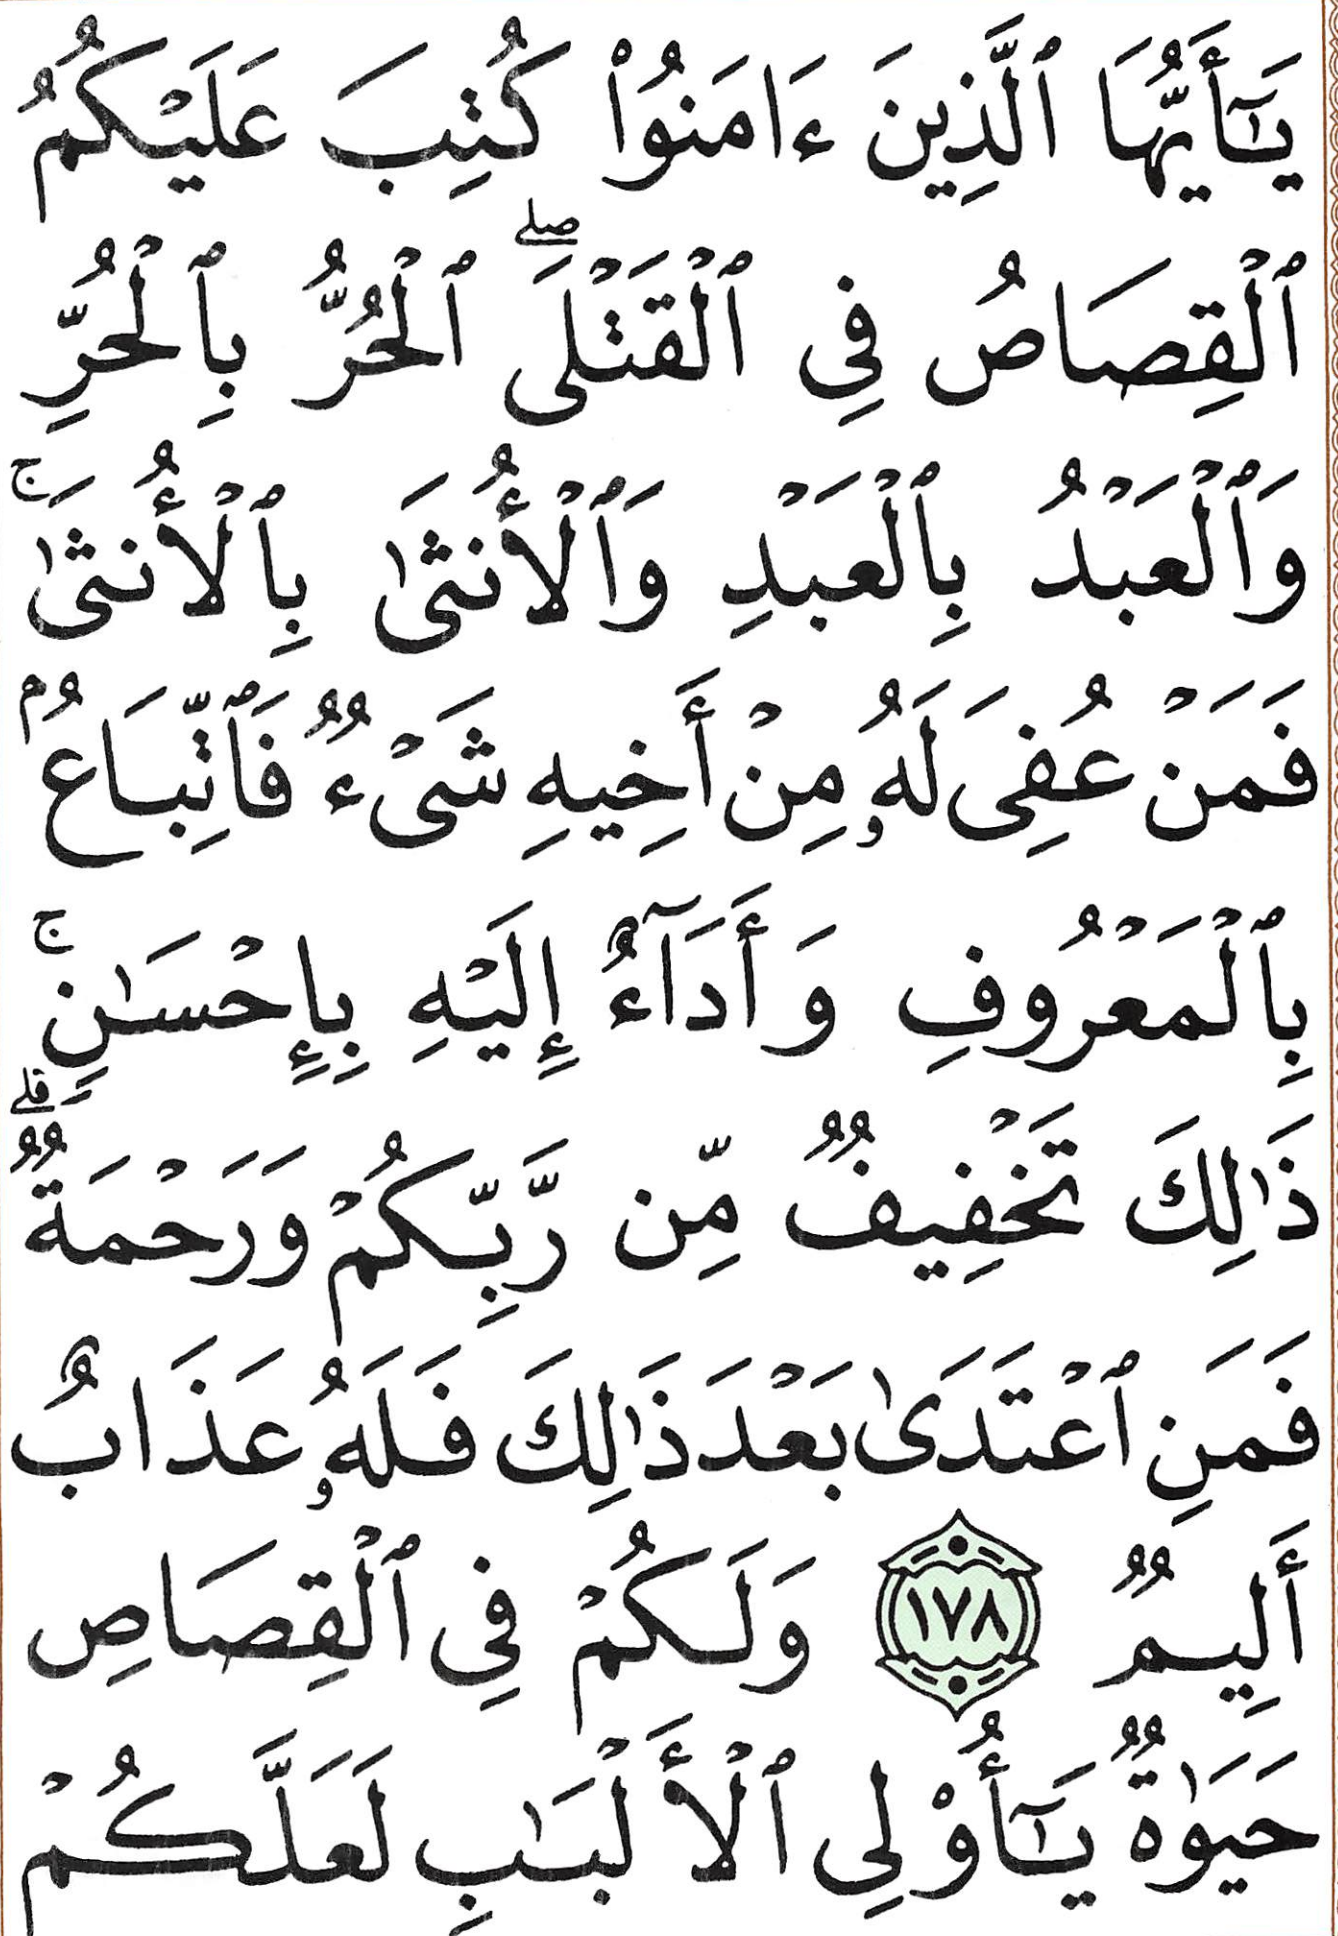 يَـٰٓأَيُّهَا ٱلَّذِينَ ءَامَنُوا۟ كُتِبَ عَلَيْكُمُ
ٱلْقِصَاصُ فِى ٱلْقَتْلَى ۖ ٱلْحُرُّ بِٱلْحُرِّ
وَٱلْعَبْدُ بِٱلْعَبْدِ وَٱلْأُنثَىٰ بِٱلْأُنثَىٰ ۚ
فَمَنْ عُفِىَ لَهُۥ مِنْ أَخِيهِ شَىْءٌ فَٱتِّبَاعٌۢ
بِٱلْمَعْرُوفِ وَأَدَآءٌ إِلَيْهِ بِإِحْسَـٰنٍ ۚ
ذَٰلِكَ تَخْفِيفٌ مِّن رَّبِّكُمْ وَرَحْمَةٌ ۗ
فَمَنِ ٱعْتَدَىٰ بَعْدَ ذَٰلِكَ فَلَهُۥ عَذَابٌ
أَلِيمٌ ١٧٨ وَلَكُمْ فِى ٱلْقِصَاصِ
حَيَوٰةٌ يَـٰٓأُو۟لِى ٱلْأَلْبَـٰبِ لَعَلَّكُمْ